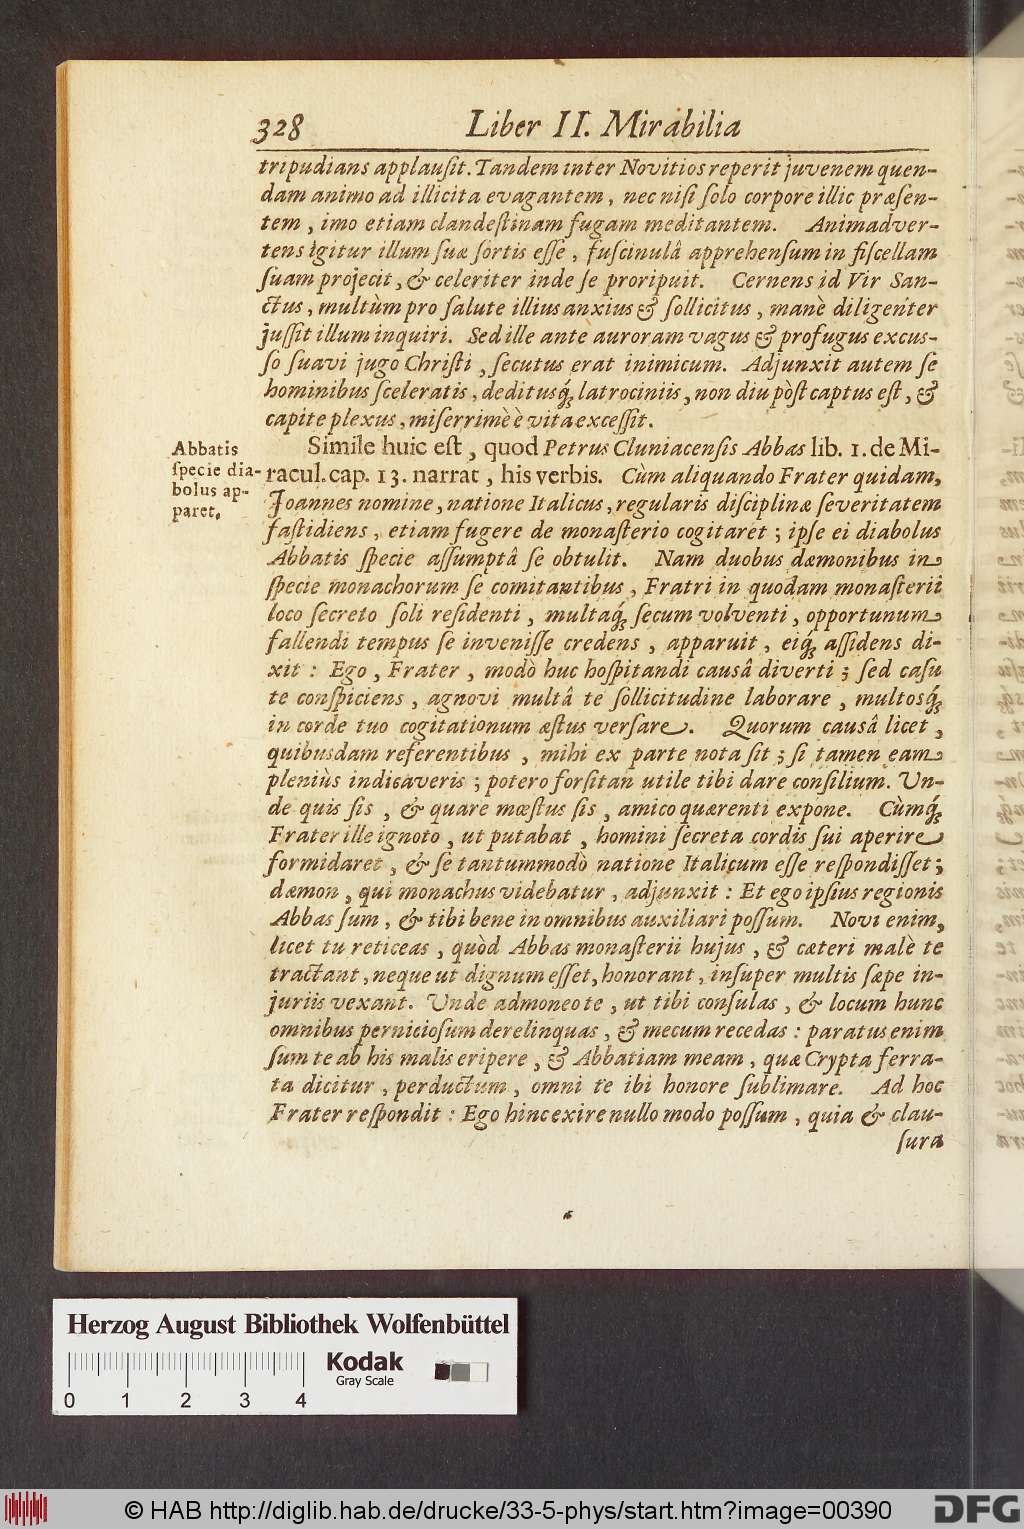 328 Liber II. Mirabilia
tripudians applauſit. Tandem inter Novitios reperit juvenem quen-
dam animo ad illicita evagantem, nec niſi ſolo corpore illic præſen-
tem, imo etiam clandeſtinam fugam meditantem. Animadver-
tens igitur illum ſuæ ſortis eſſe, fuſcinulâ apprehenſum in fiſcellam
ſuam projecit, & celeriter inde ſe proripuit. Cernens id Vir San-
ctus, multùm pro ſalute illius anxius & ſollicitus, manè diligenter
juſſit illum inquiri. Sed ille ante auroram vagus & profugus excuſ-
ſo ſuavi jugo Chriſti, ſecutus erat inimicum. Adjunxit autem ſe
hominibus ſceleratis, deditusq́; latrociniis, non diu pòſt captus eſt, &
capite plexus, miſerrimè è vita exceſſit.
Abbatis
ſpecie dia-
bolus ap-
paret.
Simile huic eſt, quod Petrus Cluniacenſis Abbas lib. 1. de Mi-
racul. cap. 13. narrat, his verbis. Cùm aliquando Frater quidam,
Joannes nomine, natione Italicus, regularis diſciplinæ ſeveritatem
faſtidiens, etiam fugere de monaſterio cogitaret; ipſe ei diabolus
Abbatis ſpecie aſſumptâ ſe obtulit. Nam duobus dæmonibus in
ſpecie monachorum ſe comitantibus, Fratri in quodam monaſterii
loco ſecreto ſoli reſidenti, multaq́; ſecum volventi, opportunum
fallendi tempus ſe inveniſſe credens, apparuit, eiq́; aſſidens di-
xit: Ego, Frater, modò huc hoſpitandi causâ diverti; ſed caſu
te conſpiciens, agnovi multâ te ſollicitudine laborare, multosq́;
in corde tuo cogitationum æſtus verſare. Quorum causâ licet,
quibusdam referentibus, mihi ex parte nota ſit; ſi tamen eam
pleniùs indicaveris; potero forſitan utile tibi dare conſilium. Un-
de quis ſis, & quare mœſtus ſis, amico quærenti expone. Cùmq́;
Frater ille ignoto, ut putabat, homini ſecreta cordis ſui aperire
formidaret, & ſe tantummodò natione Italicum eſſe reſpondiſſet;
dæmon, qui monachus videbatur, adjunxit: Et ego ipſius regionis
Abbas ſum, & tibi bene in omnibus auxiliari poſſum. Novi enim,
licet tu reticeas, quòd Abbas monaſterii hujus, & cæteri malè te
tractant, neque ut dignum eſſet, honorant, inſuper multis ſæpe in-
juriis vexant. Unde admoneo te, ut tibi conſulas, & locum hunc
omnibus pernicioſum derelinquas, & mecum recedas: paratus enim
ſum te ab his malis eripere, & Abbatiam meam, quæ Crypta ferra-
ta dicitur, perductum, omni te ibi honore ſublimare. Ad hoc
Frater reſpondit: Ego hinc exire nullo modo poſſum, quia & clau-
ſura
Herzog August Bibliothek Wolfenbüttel
Kodak
Gray Scale
0 1 2 3 4
© HAB http://diglib.hab.de/drucke/33-5-phys/start.htm?image=00390
DFG